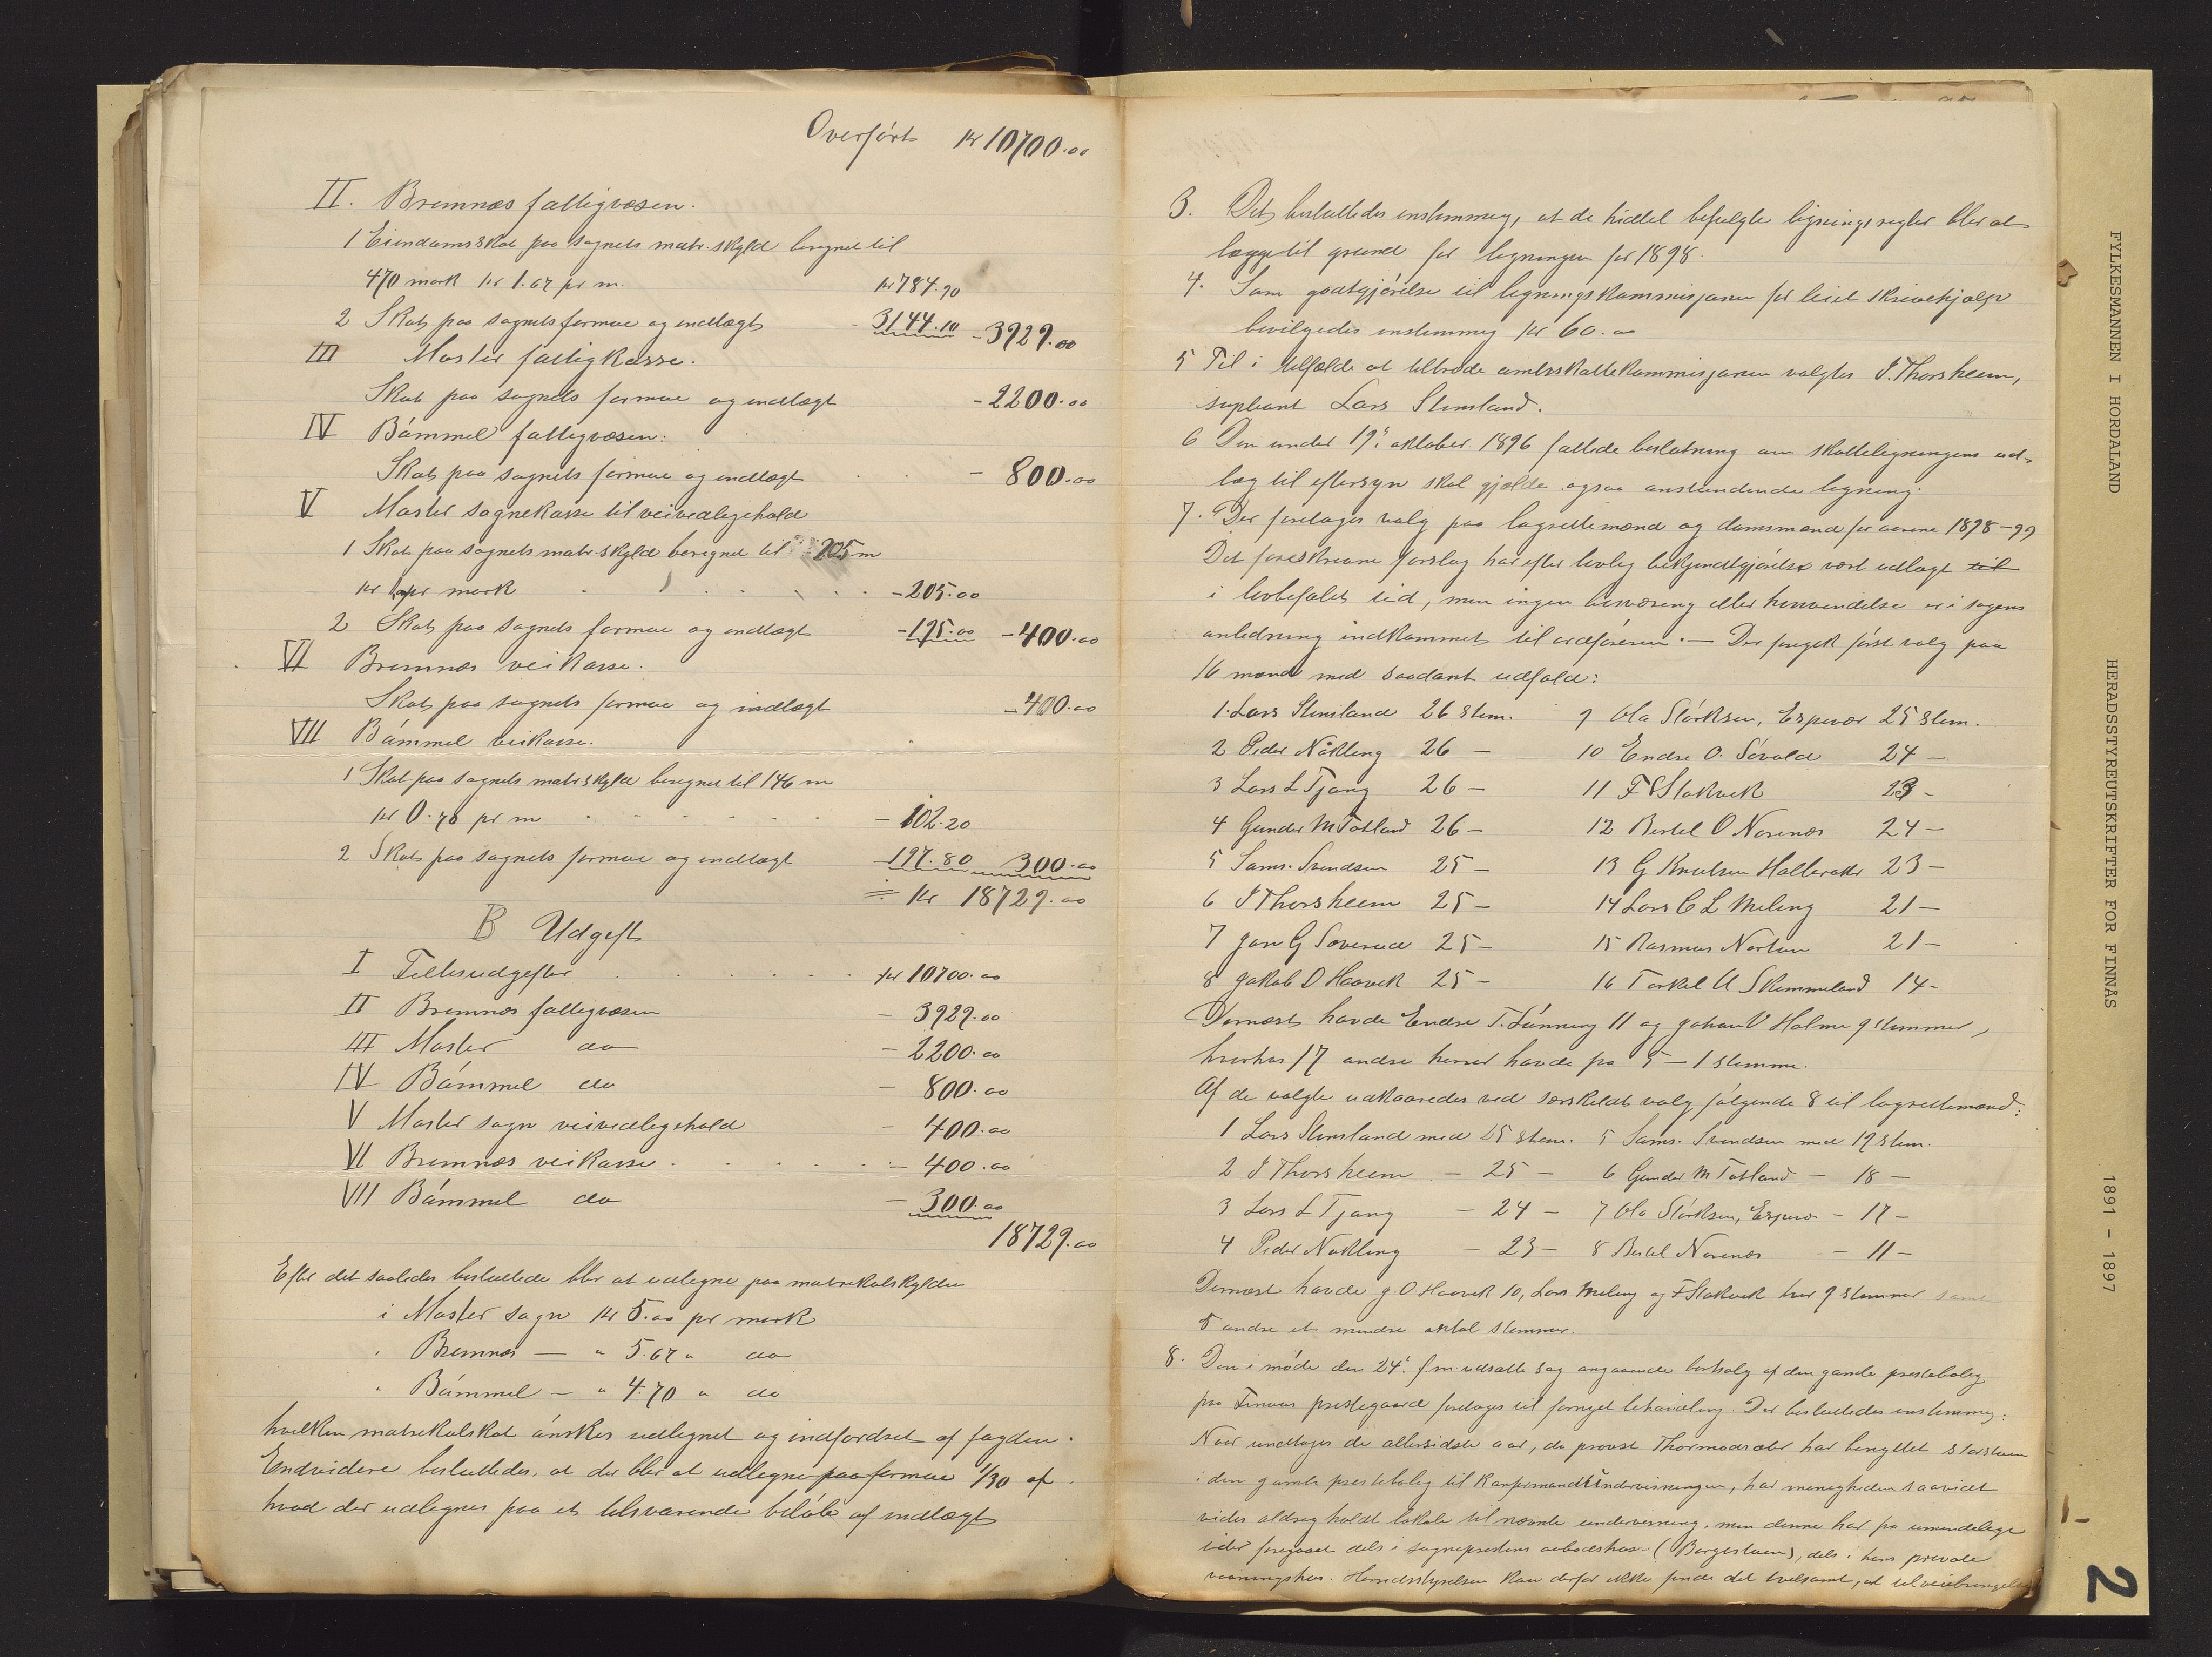 Overført Kr 10700.00
II. Bremnæs fattigvæsen.
1 Eiendomsskat paa sognets matr.skyld beregnet til
470 mark kr 1.67 pr m. kr 784.90
2 Skat paa sognets formue og indtægt 3144.10 - 3929.00
III Moster fattigkasse.
Skat paa sognets formue og indtægt - 2200.00
IV Bømmel fattigvæsen:
Skat paa sognets formue og indtægt - 800.00
V Moster sognekasse til veivedligehold
1 Skat paa sognets matr.skyld beregnet til 205 m
kr 1 pr mark - 205.00
2 Skat paa sognets formue og indtægt - 195.00 - 400.00
VI Bremnæs veikasse.
Skat paa sognets formue og indtægt - 400.00
VII Bømmel veikasse.
1 Skat paa sognets matr.skyld beregnet til 146 m
kr 0.70 pr m - 102.20
2 Skat paa sognets formue og indtægt - 197.80 300.00
= Kr 18729.00
B Udgift
I Fællesudgifter kr 10700.00
II Bremnæs fattigvæsen - 3929.00
III Moster do - 2200.00
IV Bømmel do - 800.00
V Moster sogn veivedligehold - 400.00
VI Bremnæs veikasse - 400.00
VII Bømmel do - 300.00
18729.00
Efter det saaledes besluttede blir at udligne paa matrikulskylden
i Moster sogn kr 5.00 pr mark
" Bremnæs — " 5.67 " do
" Bømmel — " 4.70 " do
hvilken matrikulskat ønskes udlignet og indfordret af fogden.
Endvidere besluttedes, at der blir at udligne paa formue 1/30 af
hvad der udlignes paa et tilsvarende beløb af indtægt
3. Det besluttedes enstemmig, at de hidtil befulgte ligningsregler blir at
lægge til grund for ligningen for 1898.
4. Som godtgjørelse til ligningskommisjonen for leiet skrivehjælp
bevilgedes enstemmig kr 60.00
5 Til i tilfælde at tiltræde amtsskattekommisjonen valgtes J. Thorsheim,
supleant Lars Stensland.
6 Den under 19de oktober 1896 fattede beslutning om skatteligningens ud-
læg til eftersyn skal gjælde ogsaa anstundende ligning.
7. Der foretages valg paa lagrettemænd og domsmænd for aarene 1898-99
Det foreskrevne forslag har efter lovlig bekjendtgjørelse vært udlagt til
i lovbefalet tid, men ingen besværing eller henvendelse er i sagens
anledning indkommet til ordføreren. — Der foregik først valg paa
16 mænd med saadant udfald:
1. Lars Stensland 26 stem. 9 Ola Størksen, Espevær 25 stem.
2 Peder Nøkling 26 — 10 Endre O. Søvold 24 —
3 Lars L Tjong 26 — 11 F Stokvik 23 -
4 Gunder M Totland 26 — 12 Bertel O Norenæs 24 —
5 Sams. Svendsen 25 — 13 G Knutsen Halleraker 23 —
6 J Thorsheim 25 — 14 Lars C L Meling 21 —
7 Jon G Soverud 25 — 15 Rasmus Nortun 21 —
8 Jakob O Haavik 25 — 16 Torkel U Skimmeland 14 -
Dernæst havde Endre T. Lønning 11 og Johan V Holme 9 stemmer,
hvorhos 17 andre herred havde fra 5 — 1 stemme.
Af de valgte udkaaredes ved særskildt valg følgende 8 til lagrettemænd:
1 Lars Stensland med 25 stem. 5 Sams. Svendsen med 19 stem.
2 J Thorsheim — 25 — 6 Gunder M Totland — 18 —
3 Lars L Tjong — 24 — 7 Ola Størksen, Espevær — 17 —
4 Peder Nøkling — 23 — 8 Bertel Norenæs — 11 —
Dernæst havde J. O Haavik 10, Lars Meling og F Stokvik hver 9 stemmer samt
5 andre et mindre antal stemmer.
8. Den i møde den 24de f.m. udsatte sag angaaende bortsalg af den gamle prestebolig
paa Finnaas prestegaard foretages til fornyet behandling. Der besluttedes enstemmig:
Naar undtages de allersidste aar, da provst Thormodsæter har benyttet storstuen
i den gamle prestebolig til konfirmandsundervisningen, har menigheden saavidt
vides aldrig holdt lokale til nævnte undervisning, men denne har fra umindelige
tider foregaaet dels i sogneprestens aabodshus (Borgestuen), dels i hans private
vaaningshus. Herredsstyrelsen kan derfor ikke finde det tvilsomt, at tilveiebringelse
FYLKESMANNEN I HORDALAND HERADSSTYREUTSKRIFTER FOR FINNÅS 1891 - 1897
2